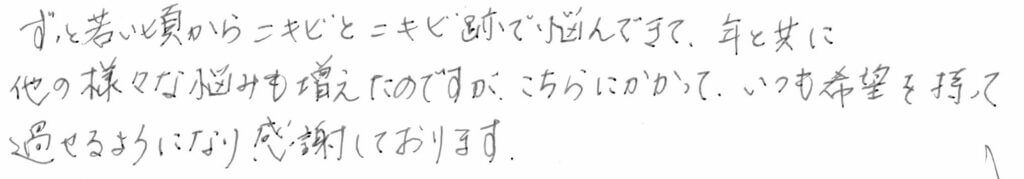 ずっと若い頃からニキビとニキビ跡で悩んできて、年と共に
他の様々な悩みも増えたのですが、こちらにかかって、いつも希望を持って
過せるようになり感謝しております.